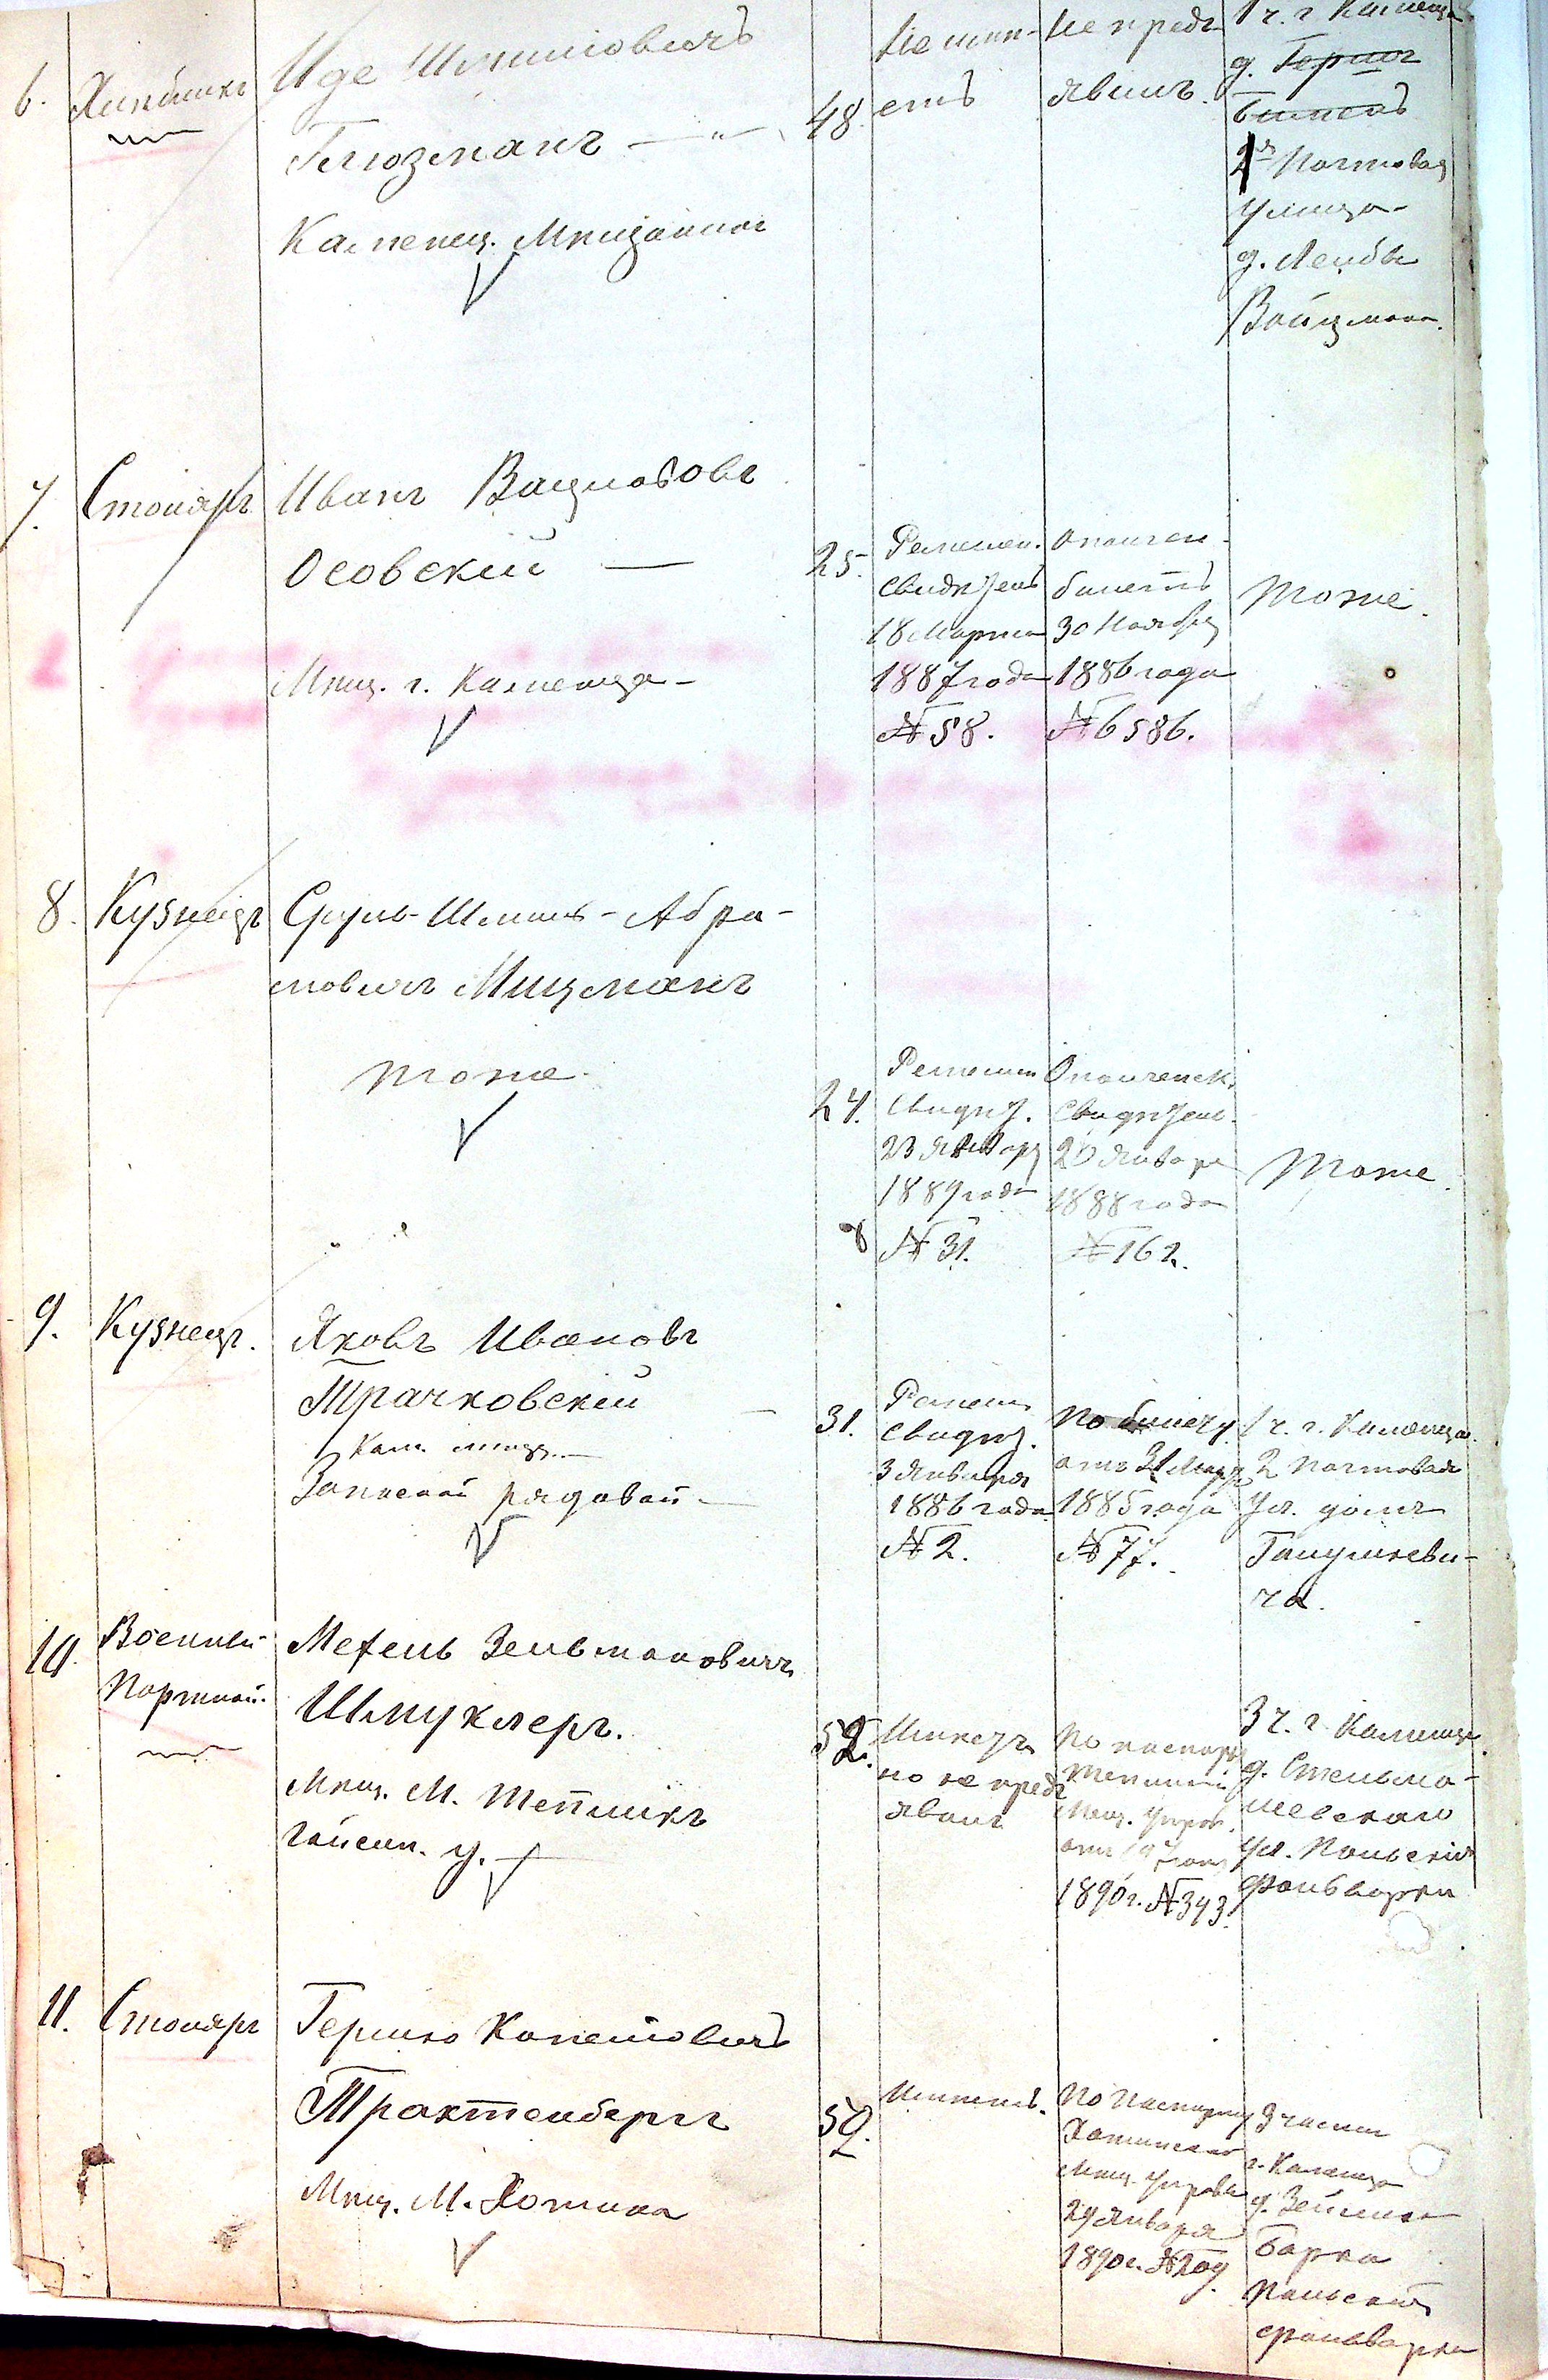 6.
Иде Шмилiовичъ
Глюзманъ — „ —
Каменец. Мѣщанинъ
48.
Не имѣ-
етъ
Не предъ
явилъ.
1 ч. г. Каменца
д. Герша
2я Почтовая
улица
д. Лейбы
Вайцмана.
7.
Столяръ
Иванъ Вацлавовъ
Осовскiй —
Мѣщ. г. Каменца
25.
Ремеслен.
Свидѣтель
18 Марта
1887 года
№ 58.
Ополчен.
билетъ
30 Ноября
1886 года
№ 6586.
Тоже.
8.
Кузнецъ
Сруль-Шмиль-Абра-
мовичъ Мицманъ
тоже.
24.
Ремеслен
Свидѣт.
23 Января
1889 года
№ 31.
Ополченск.
Свидѣтель.
20 Января
1888 года
№ 162.
Тоже.
9.
Кузнецъ.
Яковъ Ивановъ
Трачковскiй
Кам. мѣщ.
Запасной рядовой
31.
Ремесл
Свидѣт.
3 Января
1886 года
№ 2.
По билету
отъ 31 Марта
1885 года
№ 77.
1 ч. г. Каменца.
2 Почтовая
Ул. домъ
Галушкеви-
ча.
10.
Военный
Портной.
Мехель Зельмановичъ
Шмуклеръ.
Мѣщ. М. Теплика
Гайсин. у.
52.
Имѣетъ
но не предъ
явилъ
По паспорту
Тепликской
Мѣщ. Управ.
1890 г. № 393.
3 ч. г. Каменца.
д. Стельма-
шевскаго
Ул. Польскiя
фольварки
11.
Столяръ
Гершко Копелiовичъ
Трахтенбергъ
Мѣщ. М. Хотина
52.
Имѣетъ.
По Паспорту
Хотинской
Мѣщ. Управы
29 Января
1890 г. № 209.
3 части
г. Каменца
д. Зейлика
Барка
Польскiя
фольварки